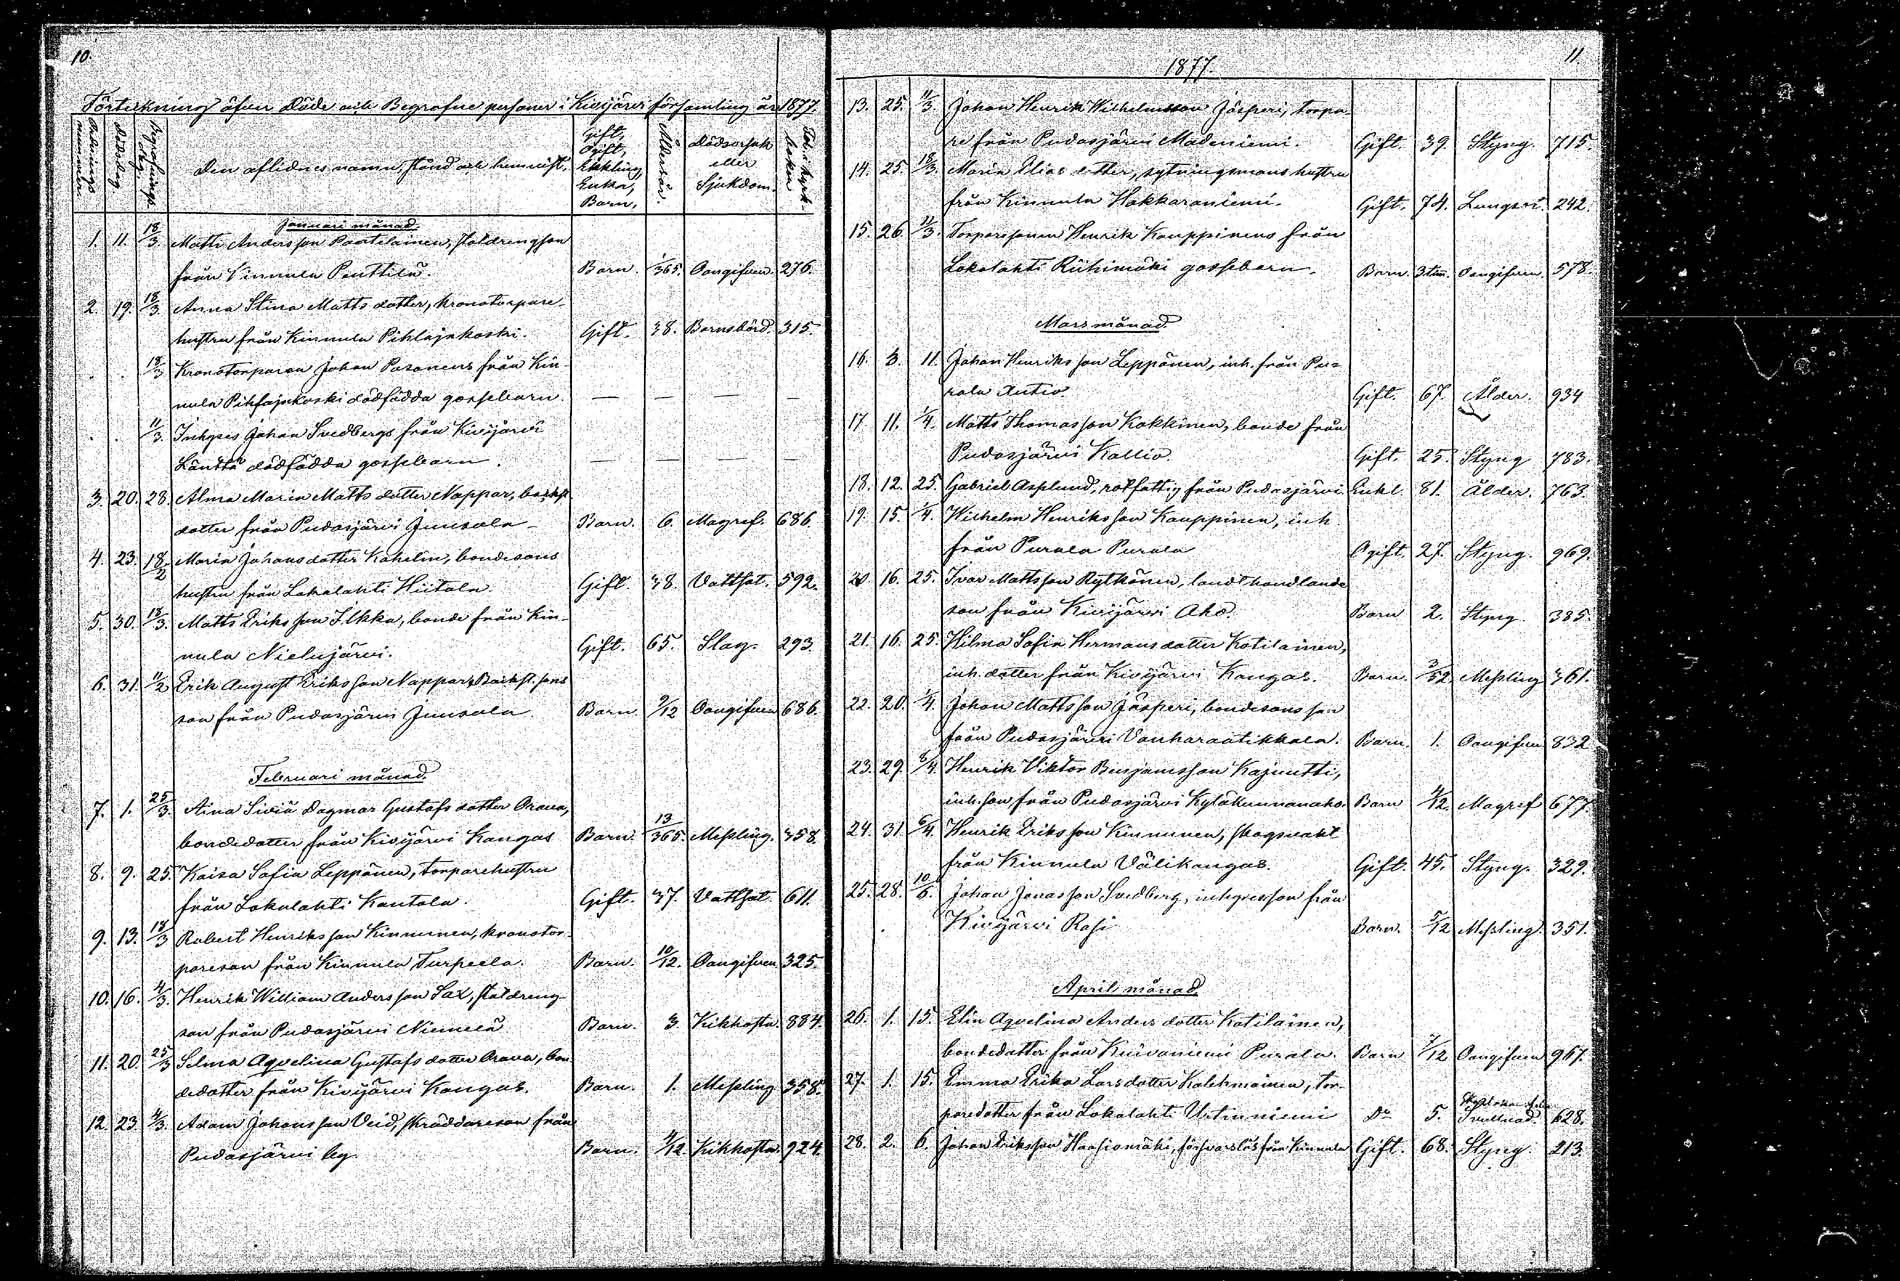 10.
Förteckning öfver Döde och Begrafne personer i Kivijärvi församling år 1877
Ordningsnummer Dödsdag Begrafningsdag Den aflidnes namn, stånd och hemvist. Gift, Ogift, Enkling, Enka, Barn. Ålder år. Dödsorsak eller Sjukdom. Fol. i kyrkboken
Januari månad.
1. 11. 18/3 Matts Andersson Pantilainen, staldrengson
från Kinnula Penttilä. Barn. 1/365. Oangifven. 276.
2. 19. 18/3 Anna Stina Matts dotter, kronotorpare-
hustru från Kinnula Pihlajakoski. Gift. 38. Barnsbörd. 315.
. . 18/3 Kronotorparen Johan Pasanens från Kin-
nula Pihlajakoski dödfödda gossebarn. — — — —
. . 11/3 Inhyses Johan Svedbergs från Kivijärvi
Länttä dödfödda gossebarn. — — — —
3. 20. 28. Alma Maria Matts dotter Nappar, backst.
dotter från Pudasjärvi Junsola Barn. 6. Magref. 686.
4. 23. 18/2 Maria Johansdotter Kahelin, bondesons
hustru från Lokalahti Hiitola. Gift. 38. Vattsot. 592.
5. 30. 18/3. Matts Eriksson Ilkka, bonde från Kin-
nula Nielujärvi. Gift. 65. Slag. 293.
6. 31. 11/2 Erik August Eriksson Nappar, Backst. sons
son från Pudasjärvi Junsola. Barn. 9/12 Oangifven 686.
Februari månad.
7. 1. 25/3. Aina Siviä Dagmar Gustafs dotter Orava,
bondedotter från Kivijärvi Kangas Barn. 13/365. Messling. 358.
8. 9. 25. Kaisa Sofia Leppänen, torparehustru
från Lokalahti Kantola. Gift. 37. Vattsot. 611.
9. 13. 18/3 Robert Henriksson Kinnunen, kronotor-
pareson från Kinnula Turpeela. Barn. 10/12. Oangifven. 325.
10. 16. 4/3. Henrik William Andersson Sax, staldreng-
son från Pudasjärvi Niemelä. Barn. 3. Kikhosta. 884.
11. 20. 25/3 Selma Aqvelina Gustafs dotter Orava, bon-
dedotter från Kivijärvi Kangas. Barn. 1. Messling 358.
12. 23. 4/3. Adam Johansson Veid, skräddareson från
Pudasjärvi by. Barn. 2/12. Kikhosta. 924.
1877.
11
13. 25. 11/3. Johan Henrik Wilhelmsson Jäsperi, torpa-
re från Pudasjärvi Madeniemi. Gift. 39. Styng. 715.
14. 25. 18/3. Maria Elias dotter, sytningsmans hustru
från Kinnula Hakkaraniemi. Gift. 74. Lungsot. 242.
15. 26. 11/3. Torparsonen Henrik Kauppinens från
Lokalahti Riihimäki gossebarn. Barn. 3 tim. Oangifven. 578.
Mars månad.
16. 3. 11. Johan Henriksson Leppänen, inh. från Pu-
rala Autio Gift. 67. Ålder. 934
17 11. 1/4. Matts Thomasson Kokkinen, bonde från
Pudasjärvi Kallio. Gift. 25. Styng 783.
18. 12. 25. Gabriel Asplund, rotfattig från Pudasjärvi. Enkl. 81. Ålder. 763.
19. 15. 1/4. Wilhelm Henriksson Kauppinen, inh.
från Purala Purala Ogift. 27. Styng. 969.
20 16. 25. Ivar Mattsson Rytkönen, landthandlande
son från Kivijärvi Aho. Barn 2. Styng. 385.
21. 16. 25. Hilma Sofia Hermans dotter Kotilainen,
inh. dotter från Kivijärvi Kangas. Barn. 3/52. Messling 361.
22. 20. 1/4. Johan Mattsson Jäsperi, bondesons son
från Pudasjärvi Vanharaatikkala. Barn. 1. Oangifven 832
23. 29. 3/4. Henrik Viktor Benjamsson Kajnutti,
inh. son från Pudasjärvi Kyläkunnanaho. Barn 4/12. Magref 677.
24. 31. 6/4. Henrik Eriksson Kinnunen, skogsvakt
från Kinnula Välikangas. Gift. 45. Styng. 329.
25. 28. 10/6. Johan Jonasson Svedberg, inhyseson från
Kivijärvi Rasi Barn. 5/12 Messling. 351.
April månad.
26. 1. 15. Elin Aqvelina Anders dotter Kotilainen,
bondedotter från Kuivaniemi Purala. Barn 7/12 Oangifven 967.
27. 1. 15. Emma Erika Lars dotter Kalehmainen, tor-
paredotter från Lokalahti Urtinniemi Do 5. Svullnad. 628.
28. 2. 6. Johan Eriksson Haasiomäki, försvarslös från Kinnula Gift. 68. Styng. 213.